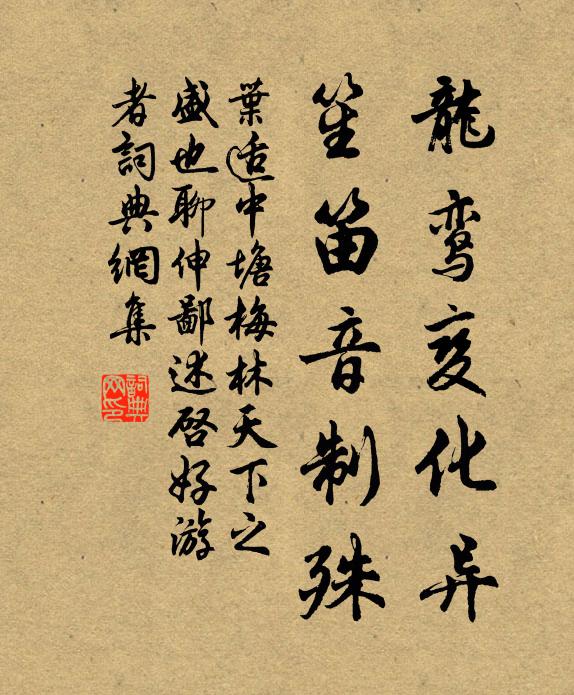 龍鸾变化异
笙笛音制殊
葉适中塘梅林天下之
盛也聊伸鄙述啓好游
者詞典網集
詞典网印